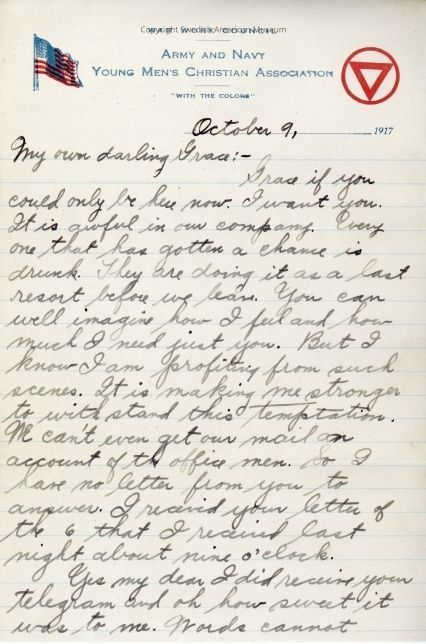 Copyright Swedish American Museum
WAR WORK COUNCIL
ARMY AND NAVY
YOUNG MEN'S CHRISTIAN ASSOCIATION
"WITH THE COLORS"
October 9, 1917
My own darling Grace:-
Grace if you
could only be here now. I want you.
It is awful in our company. Every
one that has gotten a chance is
drunk. They are doing it as a last
resort before we leave. You can
well imagine how I feel and how
much I need just you. But I
know I am profiting from such
scenes. It is making me stronger
to with stand this temptation.
We can't even get our mail on
account of th office men. So I
have no letter from you to
answer. I receivd your letter of
the 6 that I received last
night about nine o'clock.
Yes my dear I did receive your
telegram and oh how sweet it
was to me. Words cannot